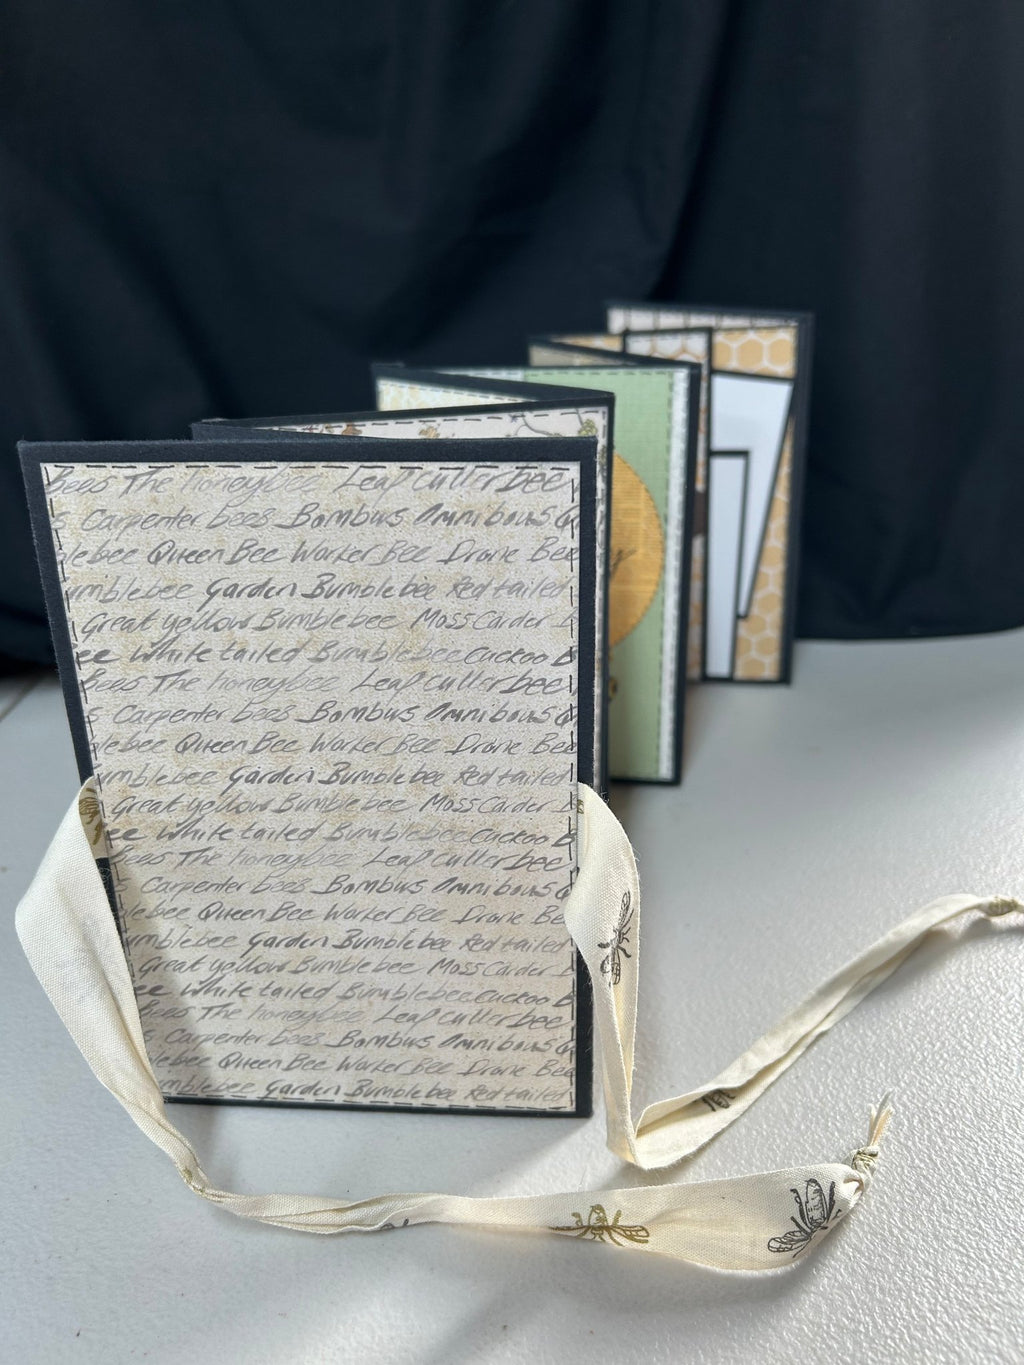 Bees The honeybee Leaf cutter bee
s Carpenter bees Bombus Omnibous
lebee Queen Bee Worker Bee Drone Bee
umblebee Garden Bumblebee Red tailed
Great yellow Bumblebee Moss Carder
ee White tailed Bumblebee Cuckoo B
Bees The honeybee Leaf cutter bee
s Carpenter bees Bombus Omnibous
lebee Queen Bee Worker Bee Drone Bee
umblebee Garden Bumblebee Red tailed
Great yellow Bumblebee Moss Carder
ee White tailed Bumblebee Cuckoo B
Bees The honeybee Leaf cutter bee
s Carpenter bees Bombus Omnibous
lebee Queen Bee Worker Bee Drone Bee
umblebee Garden Bumblebee Red tailed
Great yellow Bumblebee Moss Carder
ee White tailed Bumblebee Cuckoo B
Bees The honeybee Leaf cutter bee
s Carpenter bees Bombus Omnibous
lebee Queen Bee Worker Bee Drone Bee
umblebee Garden Bumblebee Red tailed